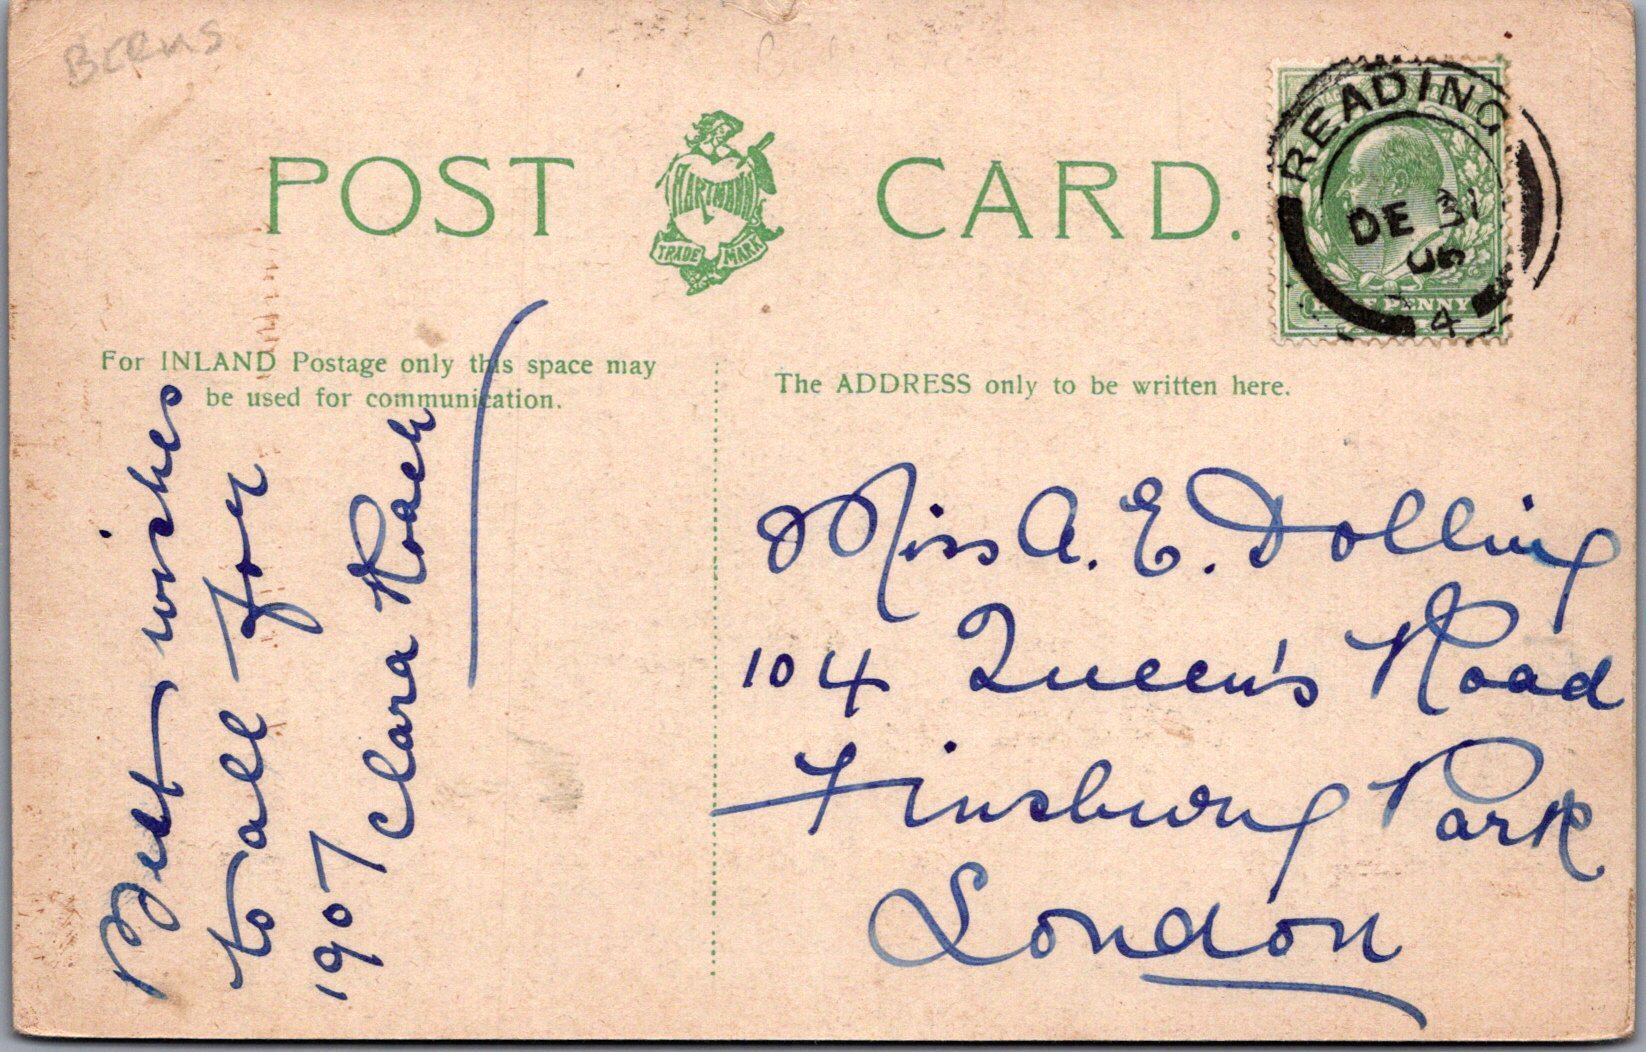 POST CARD.
HARTMANN
TRADE MARK
READING
DE 31
06
4
HALF PENNY
For INLAND Postage only this space may
be used for communication.
The ADDRESS only to be written here.
Best wishes
to all for
1907 Clara Roach
Miss A. E. Dolling
104 Queen's Road
Finsbury Park
London